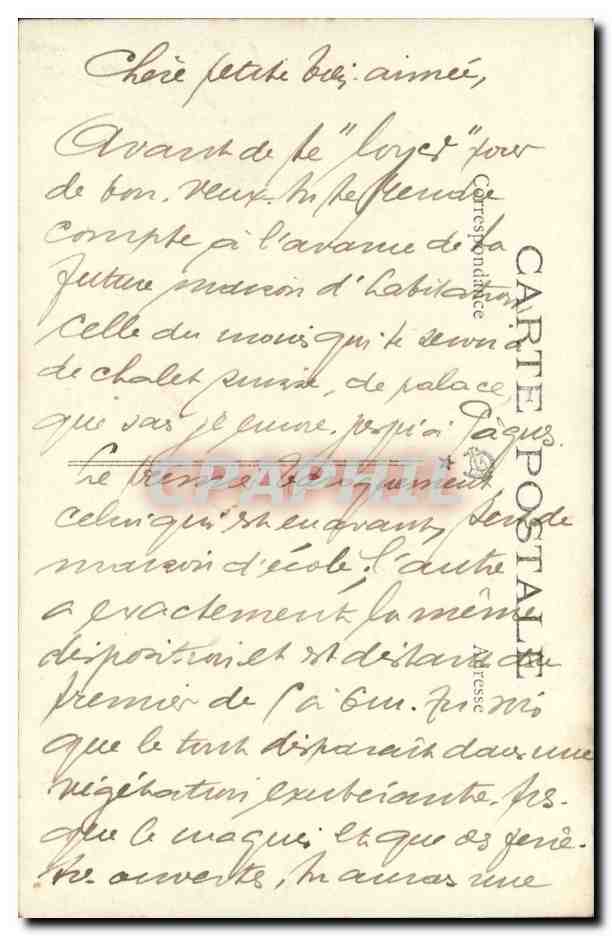 Chère petite bien-aimée,
Avant de te "loger" pour
de bon, veux-tu te rendre
compte à l'avance de ta
future maison d'habitation,
celle du moins qui te servira
de chalet suisse, de palace,
que sais-je encore, jusqu'à Pâques.
Le premier baraquement,
celui qui est en avant, sert de
maison d'école, l'autre
a exactement la même
disposition et est distant du
premier de 5 à 6 m. Tu vois
que le tout disparaît dans une
végétation exubérante,
que le maquis et que des fenê-
tres ouvertes, tu auras une
CARTE POSTALE
Correspondance
Adresse
CPARPHIL